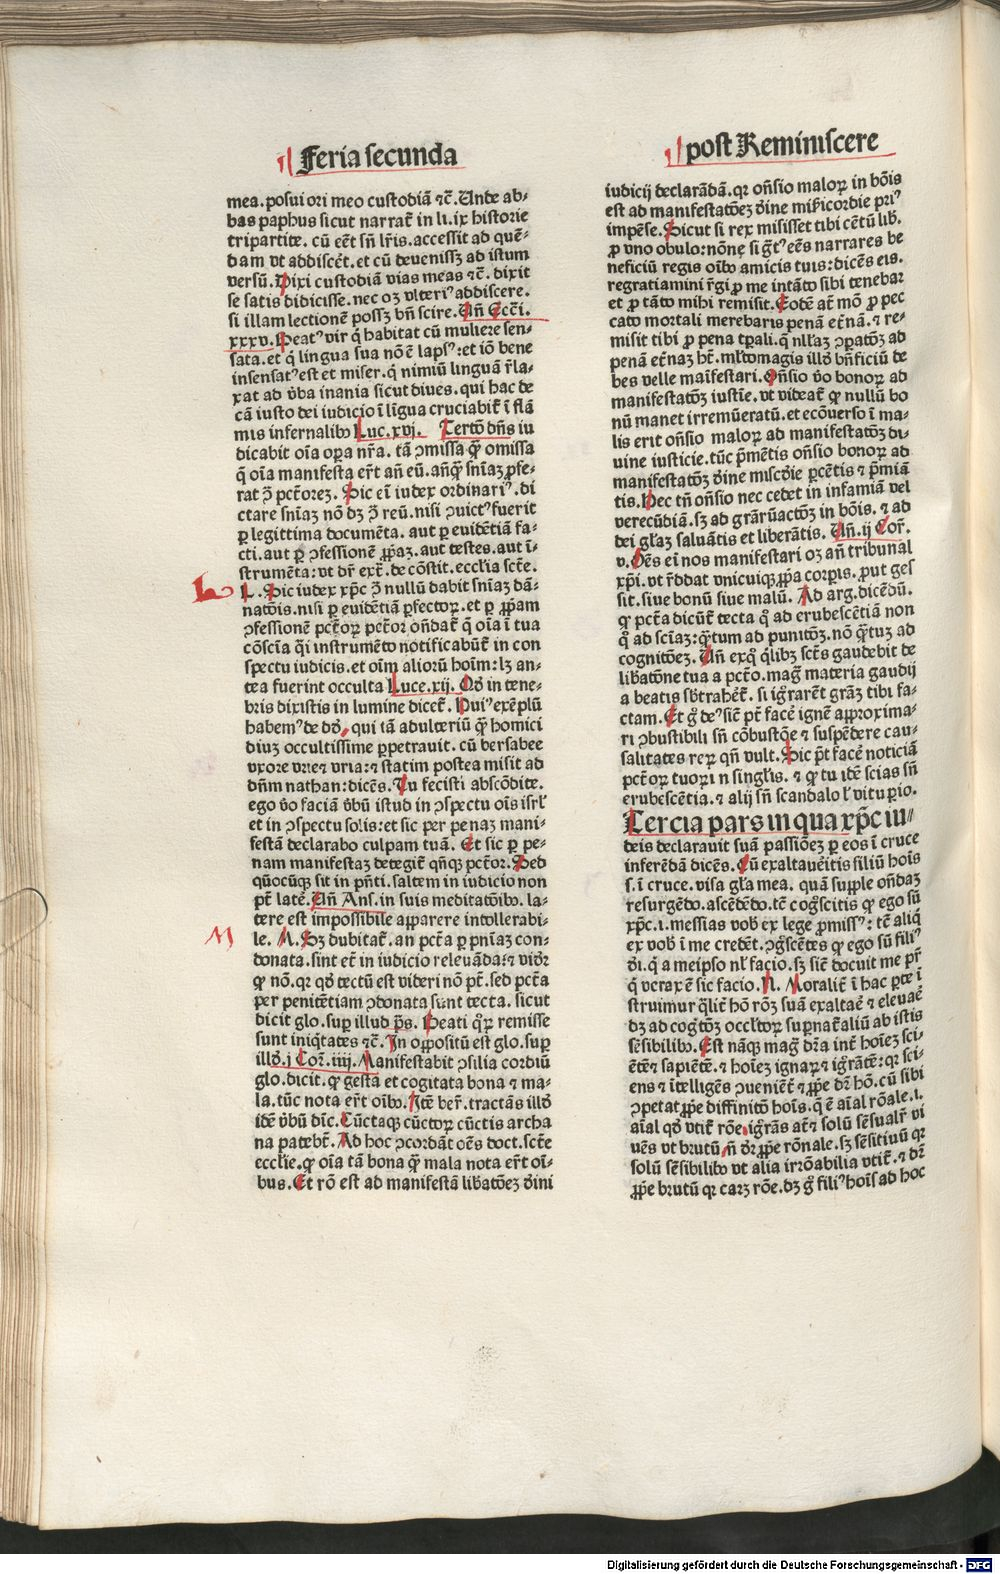 Feria secunda
mea. posui ori meo custodiā ⁊c̄. Unde ab-
bas paphus sicut narrat̄ in li. ix historie
tripartite. cū eēt sñ lr̄is. accessit ad quē-
dam vt addiscēt. et cū deuenissꝫ ad istum
versū. Dixi custodiā vias meas ⁊c̄. dixit
se satis didicisse. nec oꝫ vlteriꝰ addiscere.
si illam lectionē possꝫ bñ scire. Uñ Ecc̄i.
xxxv. Beatꝰ vir q̄ habitat cū muliere sen-
sata. et q̄ lingua sua nō ē lapsꝰ: et iō bene
insensatꝰ est et miser. q̄ nimiū linguā r̄la-
xat ad v̄ba inania sicut diues. qui hac de
cā iusto dei iudicio ī līgua cruciabit̄ ī flā
mis infernalibꝰ Luc. xvj. Tertō dñs iu
dicabit oīa oꝑa nr̄a. tā ꝯmissa q̄ꝫ omissa
q̄ oīa manifesta er̄t añ eū. añq̄ꝫ sn̄iaꝫ ꝓfe-
rat ꝯ̄ pctōreꝫ. Sic eī iudex ordinariꝰ. di
ctare sn̄iaꝫ nō dꝫ ꝯ̄ reū. nisi ꝯuictꝰ fuerit
ꝑ legittima documēta. aut ꝑ euidētiā fa-
cti. aut ꝑ ꝯfessionē ꝓpaꝫ. aut testes. aut ī-
strumēta: vt dr̄ extr̄. de cōstit. eccl̄ia sct̄e.
L. Sic iudex xp̄c ꝯ̄ nullū dabit sn̄iaꝫ dā-
natōis. nisi ꝑ euidētiā ꝑfectoꝝ. et ꝑ ꝓpam
ꝯfessionē pct̄oꝝ pctōr oñdat̄ q̄ oīa ī tua
cōscīa q̄i instrumēto notificabūt̄ in con
spectu iudicis. et oīm alioꝝ hoīm: lꝫ an-
tea fuerint occulta Luce. xij. Qd̄ in tene-
bris dixistis in lumine dicet̄. Huiꝰ exēplū
habemꝰ de dd̄. qui tā adulteriū q̄ꝫ homici
diuꝫ occultissime ꝑpetrauit. cū bersabee
vxore vrie ⁊ vria: ⁊ statim postea misit ad
dn̄m nathan: dicēs. Tu fecisti abscōdite.
ego v̄o faciā v̄bū istud in ꝯspectu oīs isrl̄
et in ꝯspectu solis: et sic per penaꝫ mani-
festā declarabo culpam tuā. Et sic ꝑ pe-
nam manifestaꝫ detegit̄ qñqꝫ pctōr. Sed
qūocūqꝫ sit in p̄nti. saltem in iudicio non
pt̄ latē. Uñ Ans. in suis meditatōibꝰ. la-
tere est impossibile apparere intollerabi-
le. M. Sꝫ dubitat̄. an pctā ꝑ pn̄iaꝫ con-
donata. sint et̄ in iudicio releuāda: ⁊ videt̄
ꝙ nō. qꝛ qd̄ tectū est videri nō pt̄. sed pctā
per penitētiam ꝯdonata sunt tecta. sicut
dicit glo. suꝑ illud ps̄. Beati qͦꝝ remisse
sunt iniq̄tates ⁊c̄. In oppositū est glo. suꝑ
illd̄. j Cor̄. iiij. Manifestabit ꝯsilia cordiū
glo. dicit. ꝙ gesta et cogitata bona ⁊ ma-
la. tūc nota er̄t oībꝰ. Itē ber̄. tractās illd̄
idē v̄bū dic̄. Cūctaqꝫ cūctoꝝ cūctis archa
na patebt̄. Ad hoc ꝯcordāt oēs doct. sct̄e
eccl̄ie. ꝙ oīa tā bona q̄ꝫ mala nota er̄t oī-
bus. Et rō est ad manifestā libatōeꝫ diuini
post Reminiscere
iudicij declarādā. qꝛ oñsio maloꝝ in bōis
est ad manifestatōeꝫ diuine mīcordie priꝰ
impēse. Sicut si rex misisset tibi cētū lib̄.
ꝓ vno obulo: nōne si gr̄tꝰ eēs narrares be
neficiū regis oībꝰ amicis tuis: dicēs eis.
regratiamini r̄gi ꝓ me intāto sibi tenebar
et ꝓ tāto mihi remisit. Eodē at̄ mō ꝓ pec
cato mortali merebaris penā et̄nā. ⁊ re-
misit tibi ꝓ pena tꝑali. q̄ nl̄laꝫ ꝯꝑatōꝫ ad
penā et̄naꝫ hꝫ. ml̄tomagis illd̄ bn̄ficiū de
bes velle maīfestari. Oñsio v̄o bonoꝝ ad
manifestatōꝫ iustīe. vt videat̄ ꝙ nullū bo
nū manet irremūeratū. et ecōuerso ī ma-
lis erit oñsio maloꝝ ad manifestatōꝫ di-
uine iusticie. tūc p̄mētis oñsio bonoꝝ ad
manifestatōꝫ diuine miscd̄ie ꝑcētis ⁊ p̄miā
tis. Nec tñ oñsio nec cedet in infamiā vel
verecūdiā. sꝫ ad grāꝝactōꝫ in bōis. ⁊ ad
dei gl̄aꝫ saluātis et liberātis. Uñ. ij Cor̄.
v. Oēs eī nos manifestari oꝫ añ tribunal
xp̄i. vt r̄ddat vnicuiqꝫ ꝓpa corꝑis. ꝓut ges
sit. siue bonū siue malū. Ad arg. dicēdū.
ꝙ pctā dicūt̄ tecta qͦ ad erubescētiā non
qͦ ad scīaꝫ: q̄ꝫtum ad punitōꝫ. nō q̄ꝫtuꝫ ad
cognitōeꝫ. Uñ exqͦ q̄libꝫ sct̄s gaudebit de
libatōne tua a pctō. maḡ materia gaudij
a beatis sb̄trahēt̄. si ignrarēt grāꝫ tibi fa-
ctam. Et g̊ deꝰ sicē pt̄ facē ignē approxima-
ri ꝯbustibili sñ cōbustōe ⁊ suspēdere cau-
salitates reꝝ qñ vult. Sic pt̄ facē noticiā
pctōꝝ tuoꝝ ī singl̄is. ⁊ ꝙ tu idē scias sñ
erubescētia. ⁊ alij sñ scandalo l̄ vituꝑio.
Tercia pars in qua xp̄c iu-
deis declarauit suā passiōeꝫ ꝑ eos ī cruce
inferēdā dicēs. Cū exaltaueritis filiū hoīs
s. ī cruce. visa gl̄a mea. quā supple oñdaꝫ
resurgēdo. ascēdēdo. tē cogͦscitis ꝙ ego sū
xp̄c. i. messias vob̄ ex lege ꝓmissꝰ: tē aliq̄
ex vob̄ ī me credēt. ꝯgͦscētes ꝙ ego sū filiꝰ
di. q̄ a meipso nl̄ facio. sꝫ sicē docuit me pr̄
q̄ verax ē sic facio. N. Moralit̄ ī hac ꝑte ī
struimur q̄lit̄ hō rōꝫ suā exaltaē ⁊ eleuaē
dꝫ ad cogͦtōꝫ occl̄toꝝ suꝑnat̄aliū ab istis
sēsibilibꝰ. Est nāqꝫ maḡ dr̄a int̄ hoīeꝫ sci-
ētē ⁊ sapiētē. ⁊ hoīeꝫ ignaꝝ ⁊ igr̄atē: qꝛ sci-
ens ⁊ ītelligēs ꝯueniēt̄ ⁊ ꝓpe dr̄ hō. cū sibi
ꝯpetat ꝓpe diffinitō hoīs. q̄ ē aīal rōale. i.
aīal qd̄ vtit̄ rōe. igr̄ās at̄ ⁊ solū sēsualr̄ vi
uēs vt brutū. ñ dr̄ ꝓpe rōnale. sꝫ sēsitiuū qꝛ
solū sēsibilibꝰ vt alia irrōabilia vtit̄. ⁊ dr̄
ꝓpe brutū qꝛ caꝝ rōe. dꝫ g̊ filiꝰ hoīs ad hoc
L
M
Digitalisierung gefördert durch die Deutsche Forschungsgemeinschaft - DFG